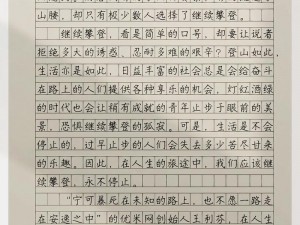 山腰，却只有极少数人选择了继续攀登。
继续攀登，看是简单的口号，却要让说者
拒绝多大的诱惑、忍耐多难的艰辛？登山如此，
生活亦是如此，日益丰富的社会总是会给奋斗
在路上的人们提供各种享乐的机会，灯红酒绿
的时代也会让稍有成就的青年止步于眼前的美
景，恐惧继续攀登的孤寂。可是，生活是不会
停止的，过早止步的人们会失去多少苦尽甘来
的乐趣。因此，在人生的旅途中，我们应该继
续攀登，永不停止。
“宁可暴死在未知的路上，也不愿一路走
在安逸之中”的优米网创始人王利芬，在人生